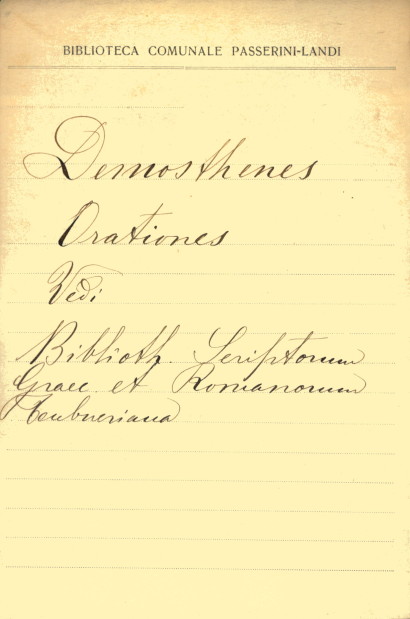 BIBLIOTECA COMUNALE PASSERINI-LANDI
Demosthenes
Orationes
Vedi
Biblioth. Scriptorum
Graec et Romanorum
Teubneriana